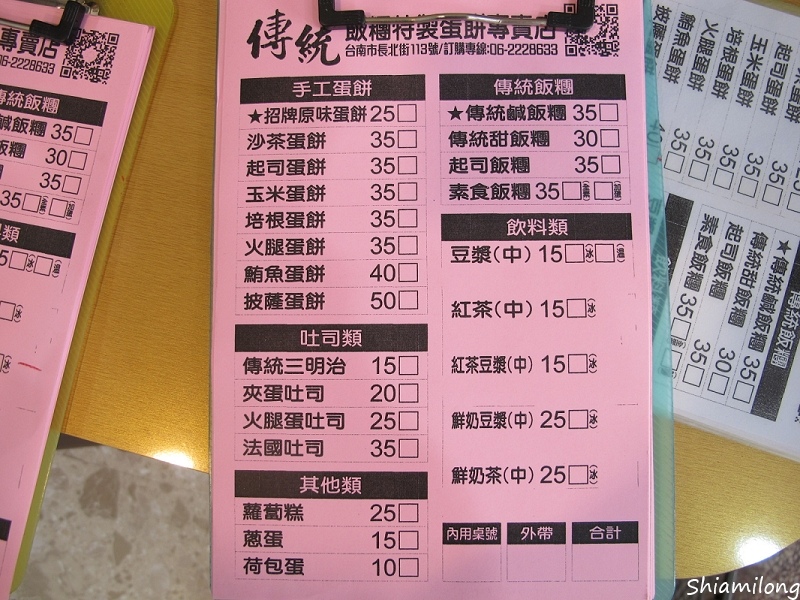 傳統 飯糰特製蛋餅專賣店
台南市長北街113號/訂購專線:06-2228633
手工蛋餅
★招牌原味蛋餅25□
沙茶蛋餅 35□
起司蛋餅 35□
玉米蛋餅 35□
培根蛋餅 35□
火腿蛋餅 35□
鮪魚蛋餅 40□
披薩蛋餅 50□
吐司類
傳統三明治 15□
夾蛋吐司 20□
火腿蛋吐司 25□
法國吐司 35□
其他類
蘿蔔糕 25□
蔥蛋 15□
荷包蛋 10□
傳統飯糰
★傳統鹹飯糰 35□
傳統甜飯糰 30□
起司飯糰 35□
素食飯糰 35□ □
飲料類
豆漿(中) 15□(冰)□(溫)
紅茶(中) 15□(冰)
紅茶豆漿(中) 15□(冰)
鮮奶豆漿(中) 25□(冰)
鮮奶茶(中) 25□(冰)
內用桌號 外帶 合計
專賣店
06-2228633
傳統飯糰
鹹飯糰 35□
飯糰 30□
35□
35□
類
玉米蛋餅 35□
起司蛋餅 35□
培根蛋餅 35□
火腿蛋餅 35□
鮪魚蛋餅
披薩蛋餅
傳統飯糰
★傳統鹹飯糰 35□
傳統甜飯糰 30□
起司飯糰 35□
素食飯糰 35□
Shiamilong